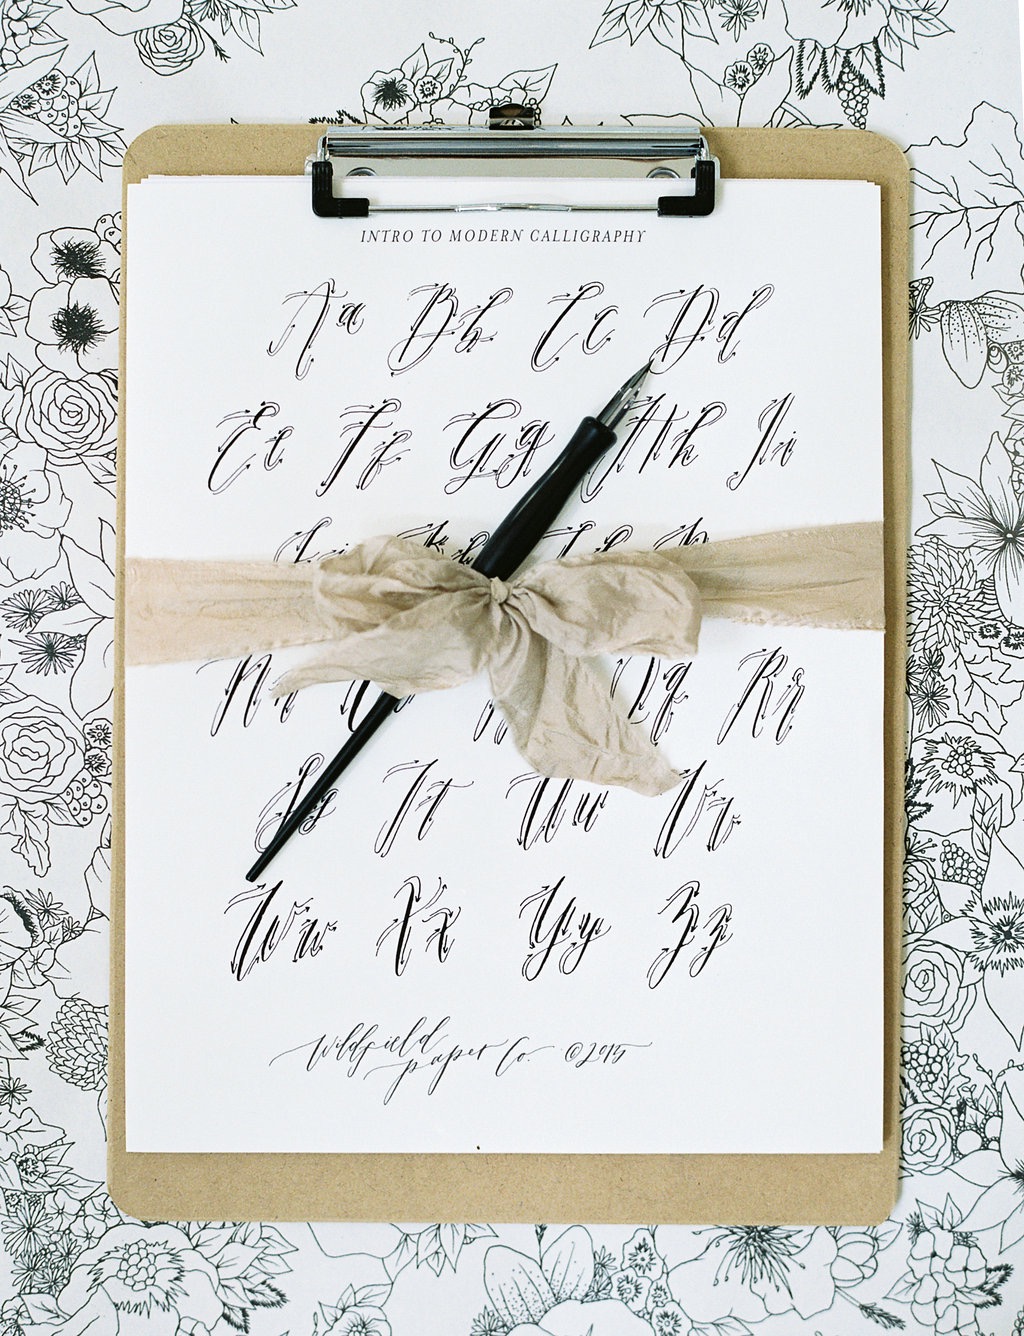 INTRO TO MODERN CALLIGRAPHY
Aa Bb Cc Dd
Ee Ff Gg Hh Ii
Jj Kk Ll M
Nn O Qq Rr
Ss Tt Uu Vv
Ww Xx Yy Zz
Wildfield
paper Co. ©2015